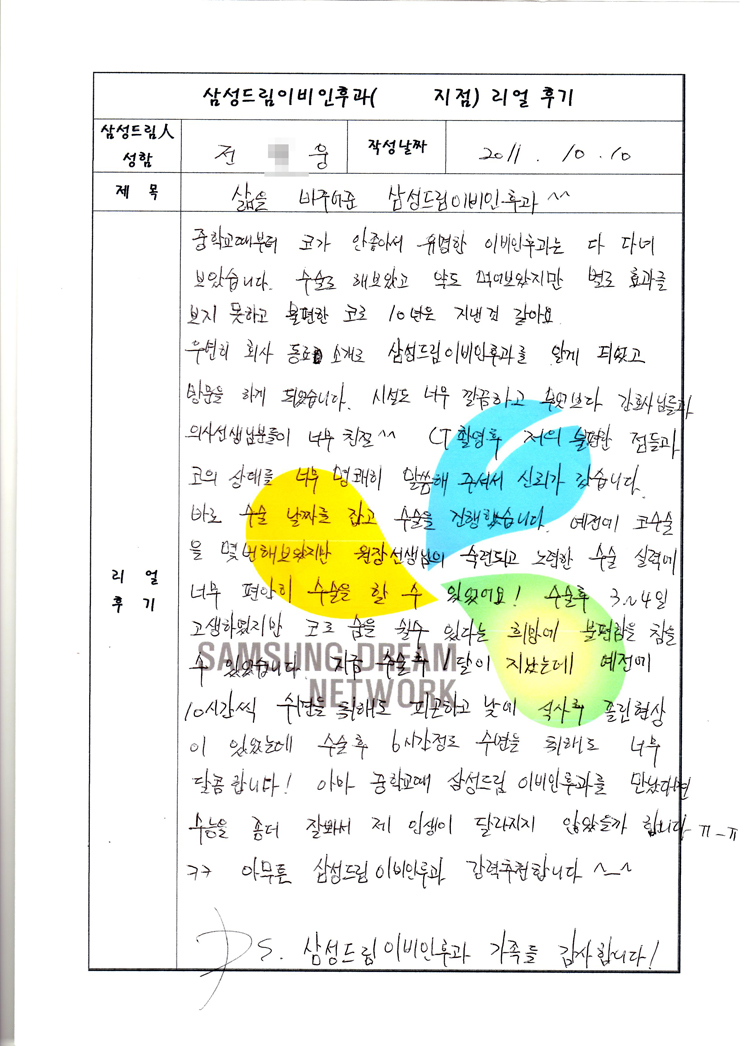 삼성드림이비인후과( 지점) 리얼 후기
삼성드림人
성함
전 웅
작성날짜
2011 . 10 . 10
제 목
삶을 바꾸어준 삼성드림이비인후과 ^^
중학교때부터 코가 안좋아서 유명한 이비인후과는 다 다녀
보았습니다. 수술도 해보았고 약도 먹어보았지만 별로 효과를
보지 못하고 불편한 코로 10년은 지낸것 같아요.
우연히 회사 동료 소개로 삼성드림이비인후과를 알게 되었고
방문을 하게 되었습니다. 시설도 너무 깔끔하고 무엇보다 간호사님들과
의사선생님분들이 너무 친절 ^^ CT촬영후 저의 불편한 점들과
코의 상태를 너무 명쾌히 말씀해 주셔서 신뢰가 갔습니다.
바로 수술 날짜를 잡고 수술을 진행했습니다. 예전에 코수술
을 몇번해보았지만 원장선생님의 숙련되고 노력한 수술 실력에
너무 편안히 수술을 할 수 있었어요! 수술후 3~4일
고생하였지만 코로 숨을 쉴수 있다는 희망에 불편함을 참을
수 있었습니다. 지금 수술후 1달이 지났는데 예전에
10시간씩 수면을 취해도 피곤하고 낮에 식사후 졸린현상
이 있었는데 수술후 6시간정도 수면을 취해도 너무
달콤합니다! 아마 중학교때 삼성드림 이비인후과를 만났다면
수능을 좀더 잘봐서 제 인생이 달라지지 않았을까 합니다 ㅠ-ㅠ
ㅋㅋ 아무튼 삼성드림이비인후과 강력추천합니다 ^__^
PS. 삼성드림이비인후과 가족들 감사합니다!
리 얼
후 기
SAMSUNG DREAM
NETWORK